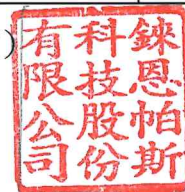 錸恩帕斯
科技股份
有限公司